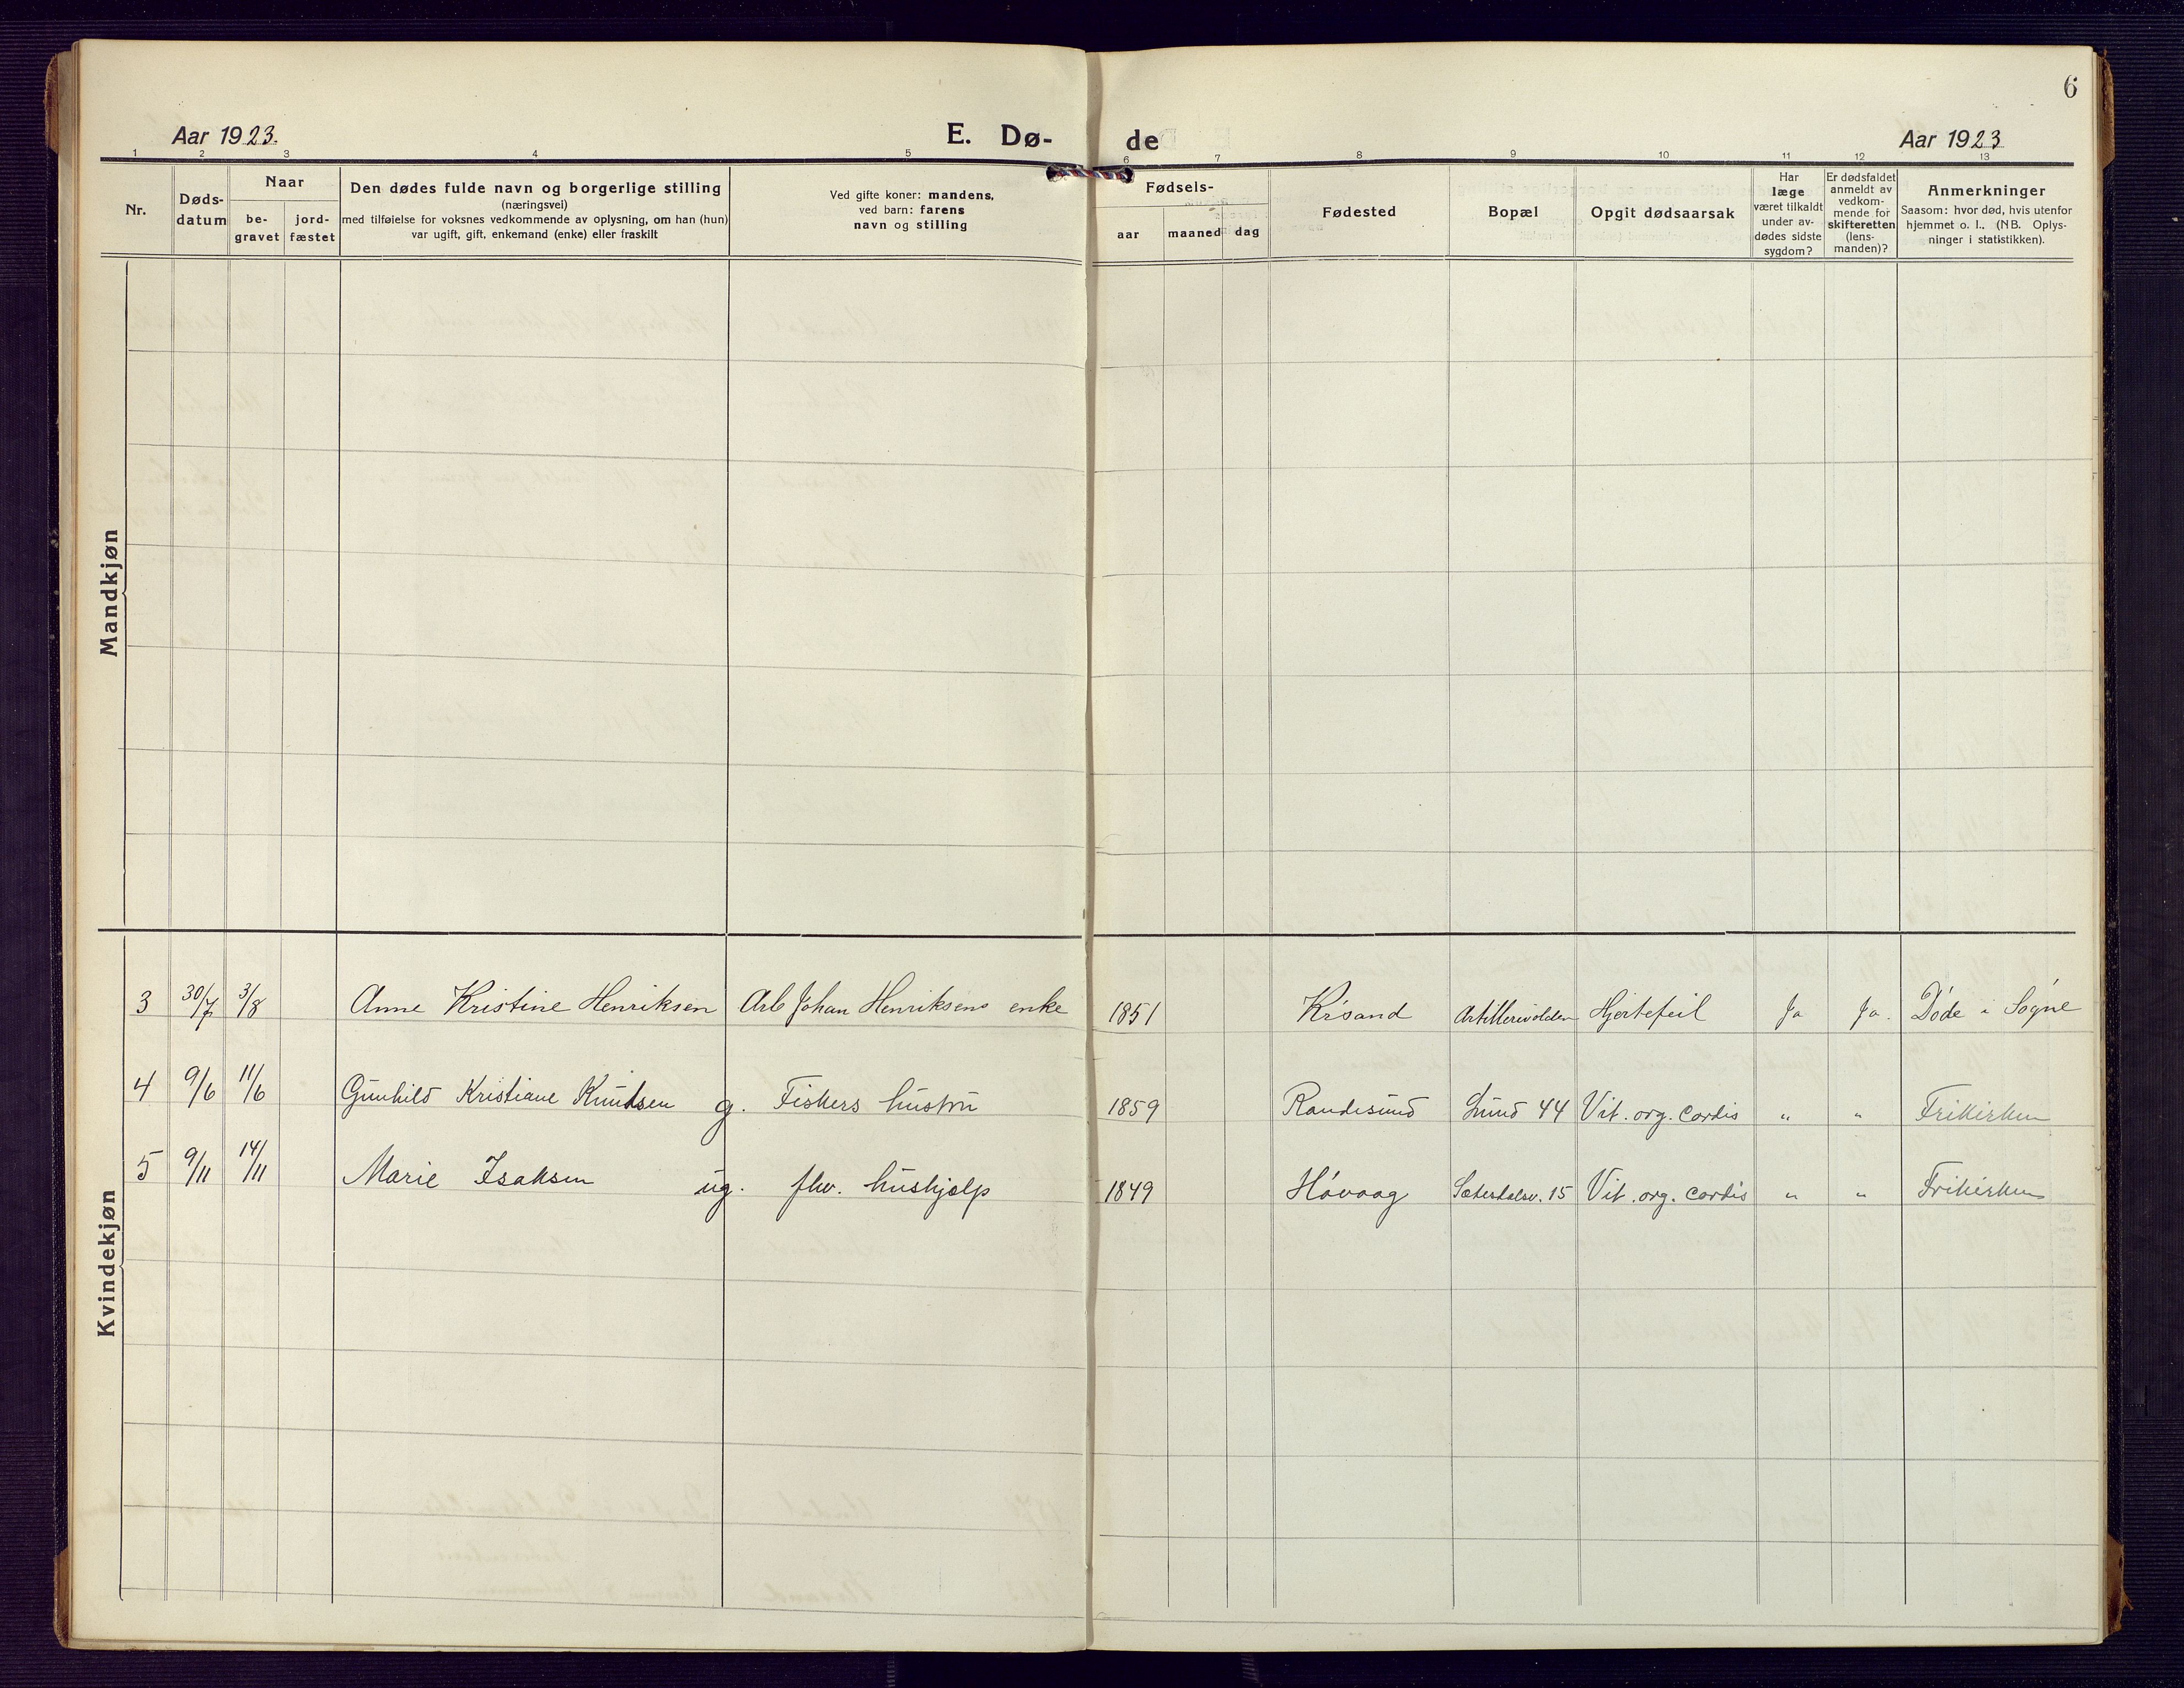 6
Aar 1923. E. Dø- de Aar 1923
1 2 3 4 5 6 7 8 9 10 11 12 13
Nr.
Døds-
datum
Naar
be-
gravet
jord-
fæstet
Den dødes fulde navn og borgerlige stilling
(næringsvei)
med tilføielse for voksnes vedkommende av oplysning, om han (hun)
var ugift, gift, enkemand (enke) eller fraskilt
Ved gifte koner: mandens,
ved barn: farens
navn og stilling
Fødsels-
aar maaned dag
Fødested
Bopæl
Opgit dødsaarsak
Har
læge
været tilkaldt
under av-
dødes sidste
sygdom?
Er dødsfaldet
anmeldt av
vedkom-
mende for
skifteretten
(lens-
manden)?
Anmerkninger
Saasom: hvor død, hvis utenfor
hjemmet o. l.. (NB. Oplys-
ninger i statistikken).
Mandkjøn
Kvindekjøn
3 30/7 3/8 Anne Kristine Henriksen Arb Johan Henriksens enke 1851 Kr.sand Artillerivolden Hjertefeil Ja Ja. Døde i Søgne
4 9/6 11/6 Gunhild Kristiane Knudsen g. Fiskers hustru 1859 Randesund Lund 44 Vit. org. cordis " " Frikirken
5 9/11 14/11 Marie Isaksen ug. fhv. hushjælp 1849 Høvaag Sæterdalsv. 15 Vit. org. cordis " " Frikirken